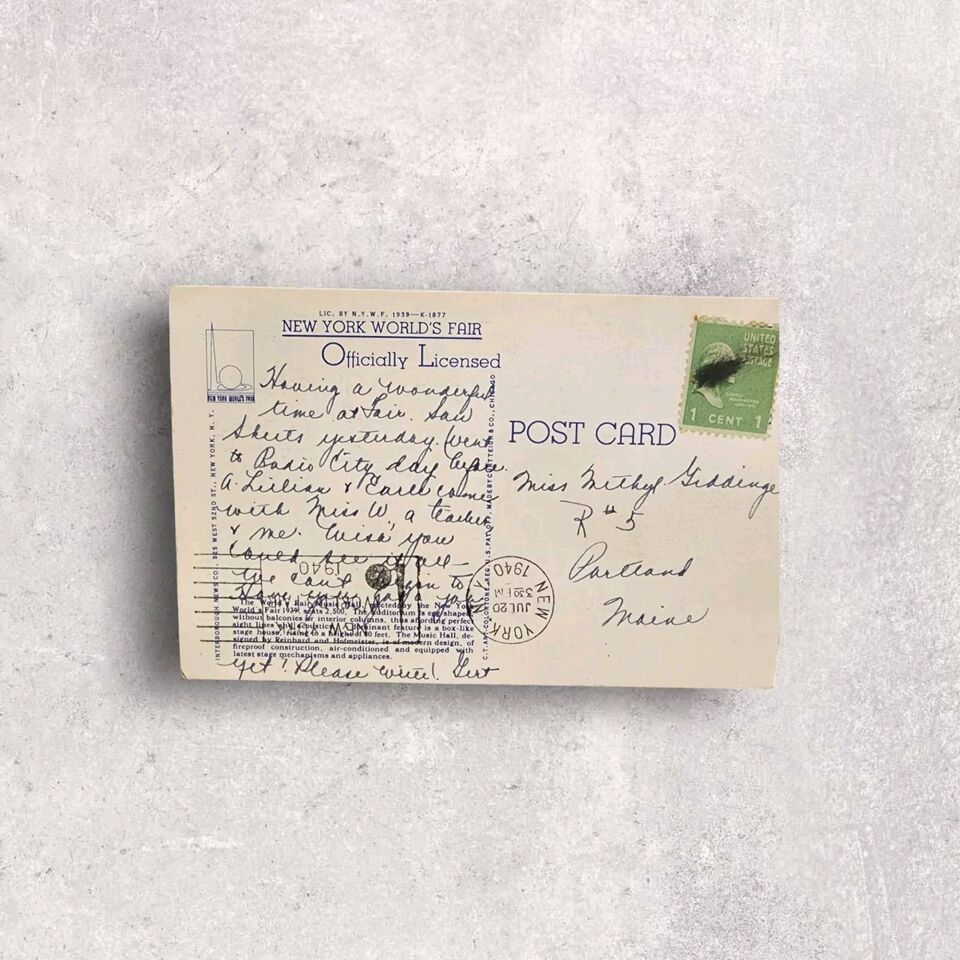 LIC. BY N.Y.W.F. 1939—K-1877
NEW YORK WORLD'S FAIR
Officially Licensed
NEW YORK WORLD'S FAIR
Having a wonderful
time at Fair. Saw
yesterday. Went
to Radio City day before.
A. Lillian & Earle came
with Miss W, a teacher
& me. Wish you
could see it all—
We can't begin to
Have you
yet! Please write! Gert
The World's Fair Music Hall, erected by the New York
World's Fair 1939, seats 2,500. The auditorium is egg-shaped
without balconies or interior columns, thus affording perfect
sight lines and acoustics. dominant feature is a box-like
stage house, rising to a height of 80 feet. The Music Hall, de-
signed by Reinhard and Hofmeister, is of modern design, of
fireproof construction, air-conditioned and equipped with
latest stage mechanisms and appliances.
INTERBOROUGH NEWS CO., 525 WEST 52ND ST., NEW YORK, N. Y.
C.T. ART-COLORTONE REG. U.S. PAT. OFF. MADE BY CURT TEICH & CO., CHICAGO
POST CARD
UNITED
STATES
POSTAGE
GEORGE
WASHINGTON
1 CENT 1
Miss Methyl Giddinge
R #5
Portland
Maine
NEW YORK
JUL 20
3 30 PM
1940
NEW
WORLD'S FAIR
1940